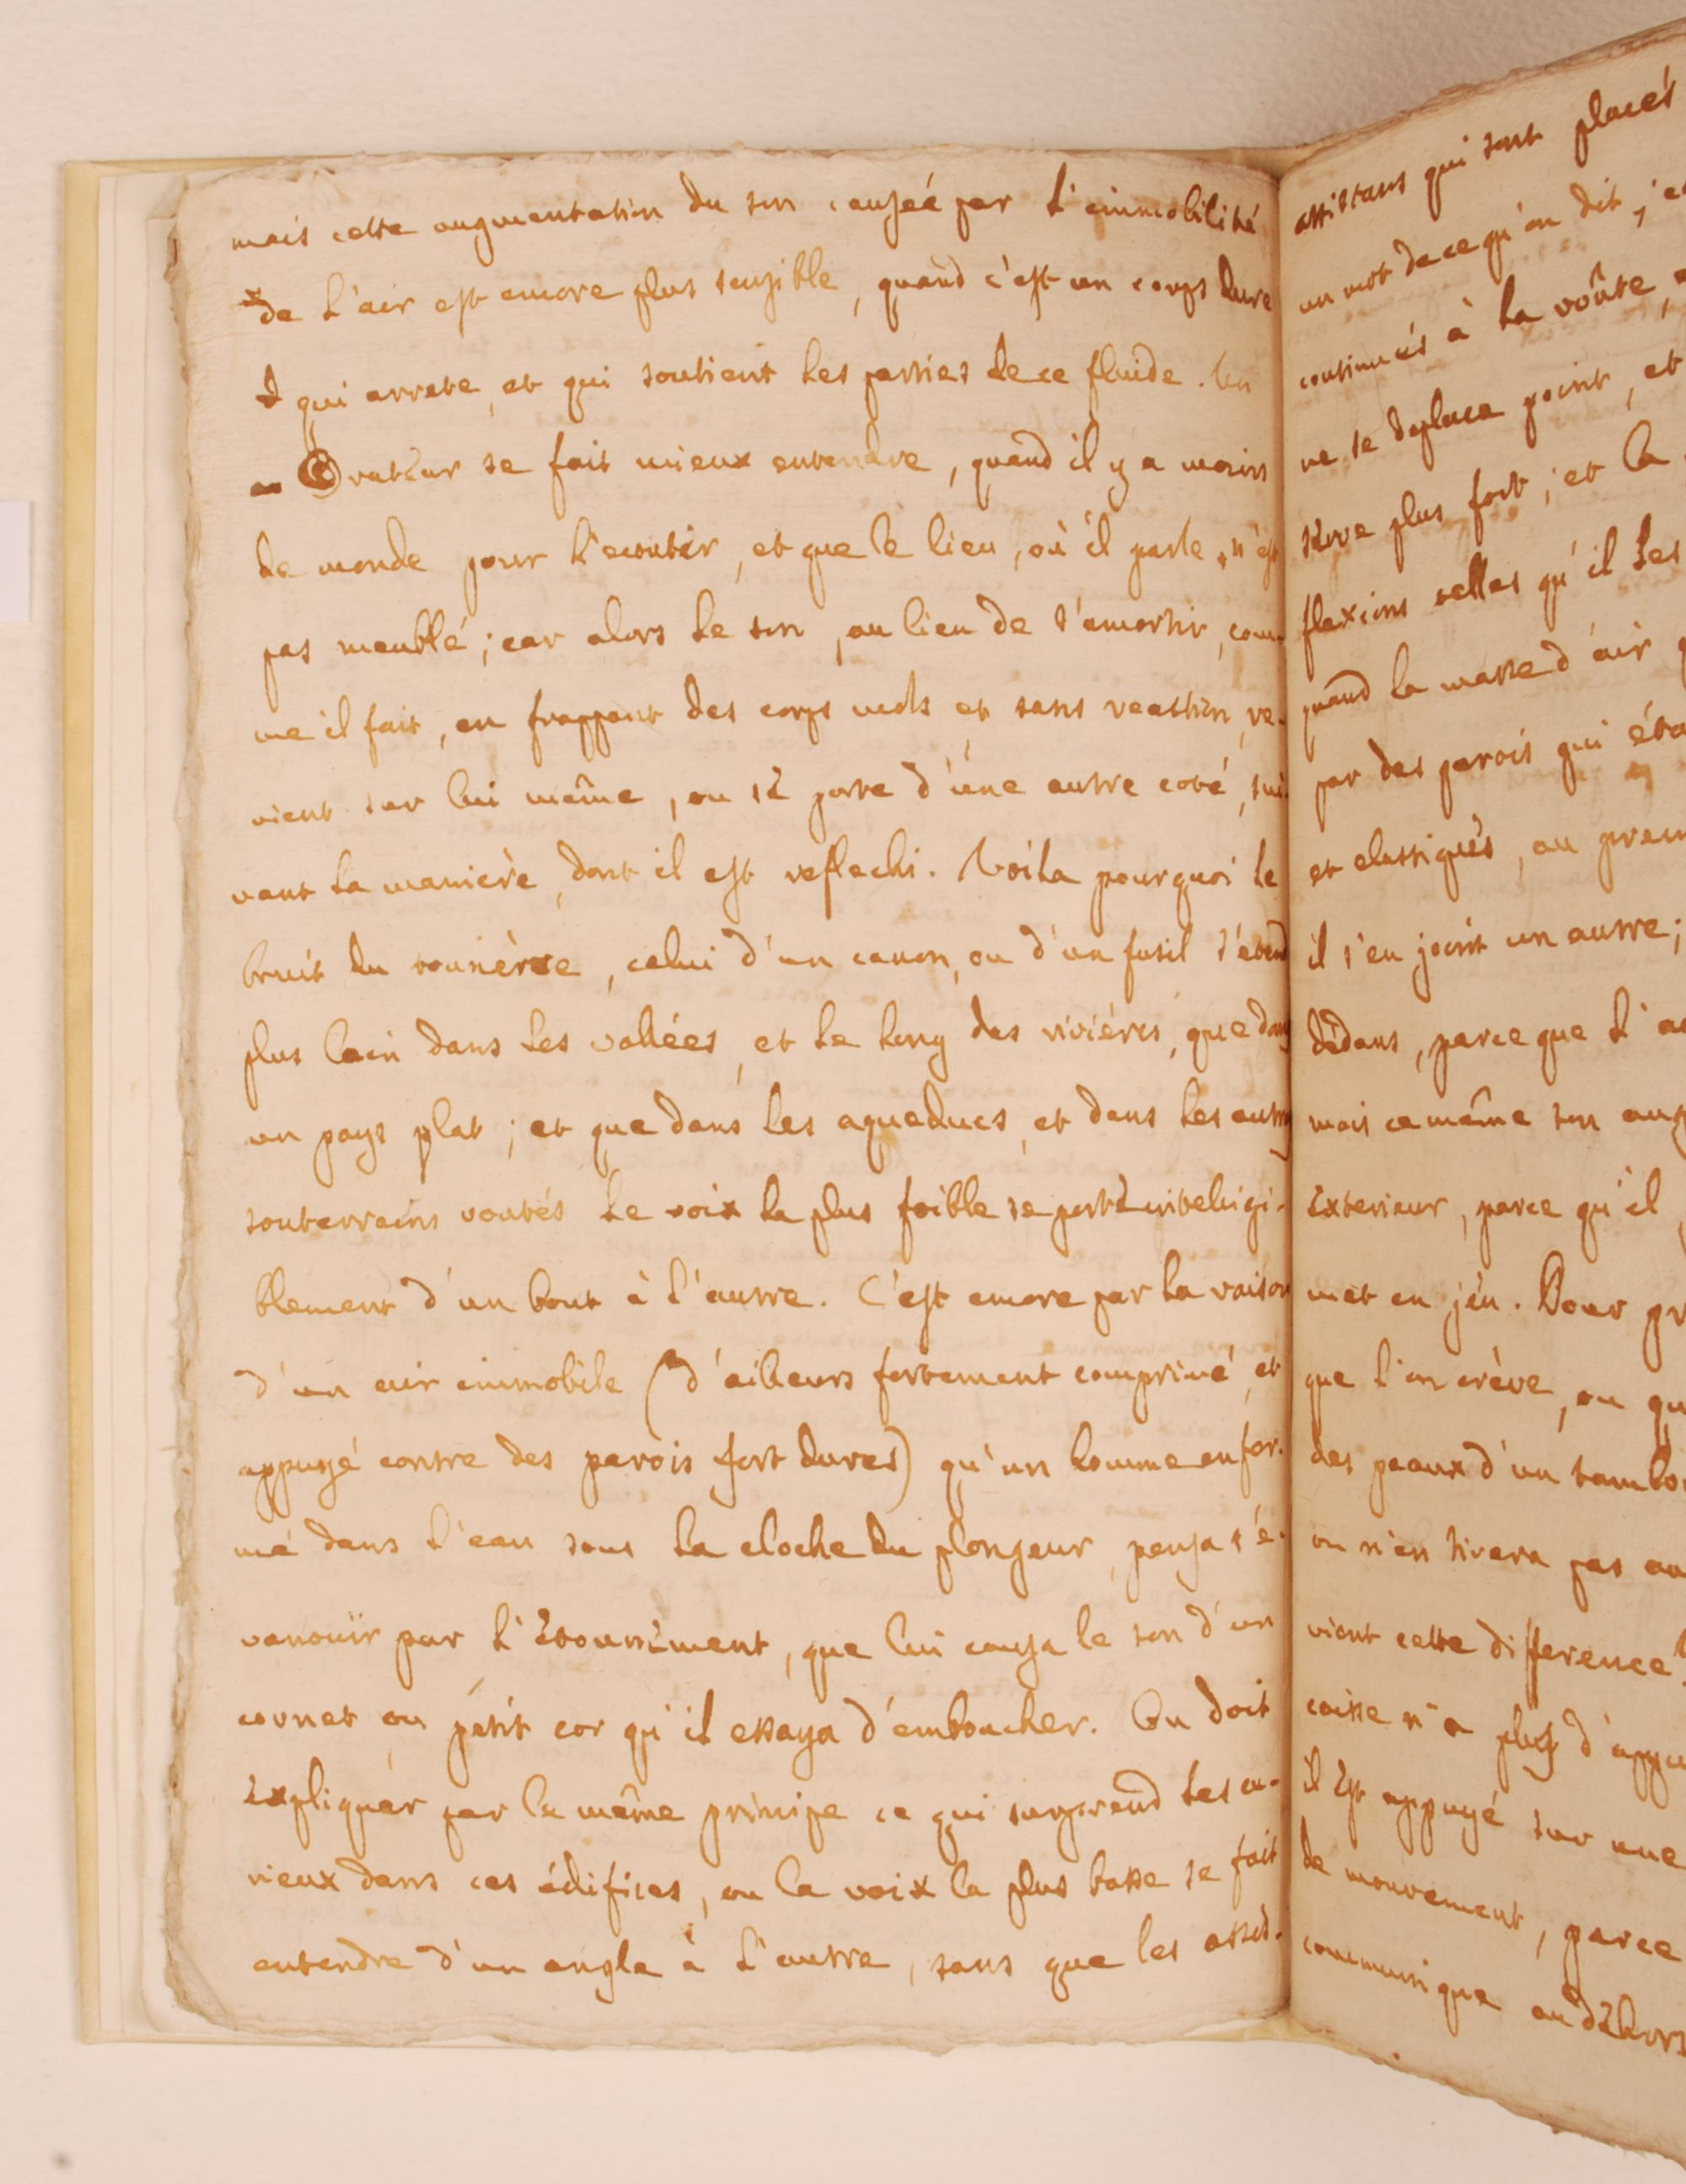 mais cette augmentation du son causeé par L'immobilité
de L'air est encore plus sensible, quand c'est un corps dure
qui arrete, et qui soutient Les parties de ce fluide. Un
Orateur se fait mieux entendre, quand il y a moins
de monde pour L'ecouter, et que le lieu, où il parle, n'est
pas meublé; car alors Le son, au lieu de s'amortir, com-
me il fait, en frappant des corps mols et sans reaction, re-
vient sur lui même, ou se porte d'une autre coté, sui-
vant La maniere, dont il est reflechi. Voila pourquoi Le
bruit du tounère, celui d'un canon, ou d'un fusil s'étend
plus loin dans Les vallées, et Le long des rivières, que dans
un pays plat; et que dans Les aqueducs, et dans Les autres
souterrains voutés La voix La plus foible se porte intelligi-
blement d'un bout à L'autre. C'est encore par La raison
d'un air immobile (d'ailleurs fortement comprimé, et
appuyé contre des parois fort dures) qu'un homme enfer-
mé dans L'eau sous La cloche du plongeur, pensa s'é-
vanouïr par L'étourdiment, que lui causa le son d'un
cornet ou petit cor qu'il essaya d'emboucher. On doit
Expliquer par Le même principe ce qui surprend Les cu-
rieux dans ces édifices, ou la voix la plus basse se fait
entendre d'un angle à L'autre, sans que les assis-
assistans qui sont placés
un mot de ce qu'on dit;
continués à La voûte,
ne se deplace point, et
serve plus fort; et la
flexions telles qu'il Les
quand la masse d'air
par des parois qui
et elastiques, au
il s'en joint un autre;
dedans, parce que L'
mais ce même son
Exterieur, parce qu'il
met en jeu. Pour
que L'on crève, ou
des peaux d'un
on n'en tirera pas
vient cette difference
caisse n'a plus
il Est appuyé sur une
de mouvement, parce
communique au dehors